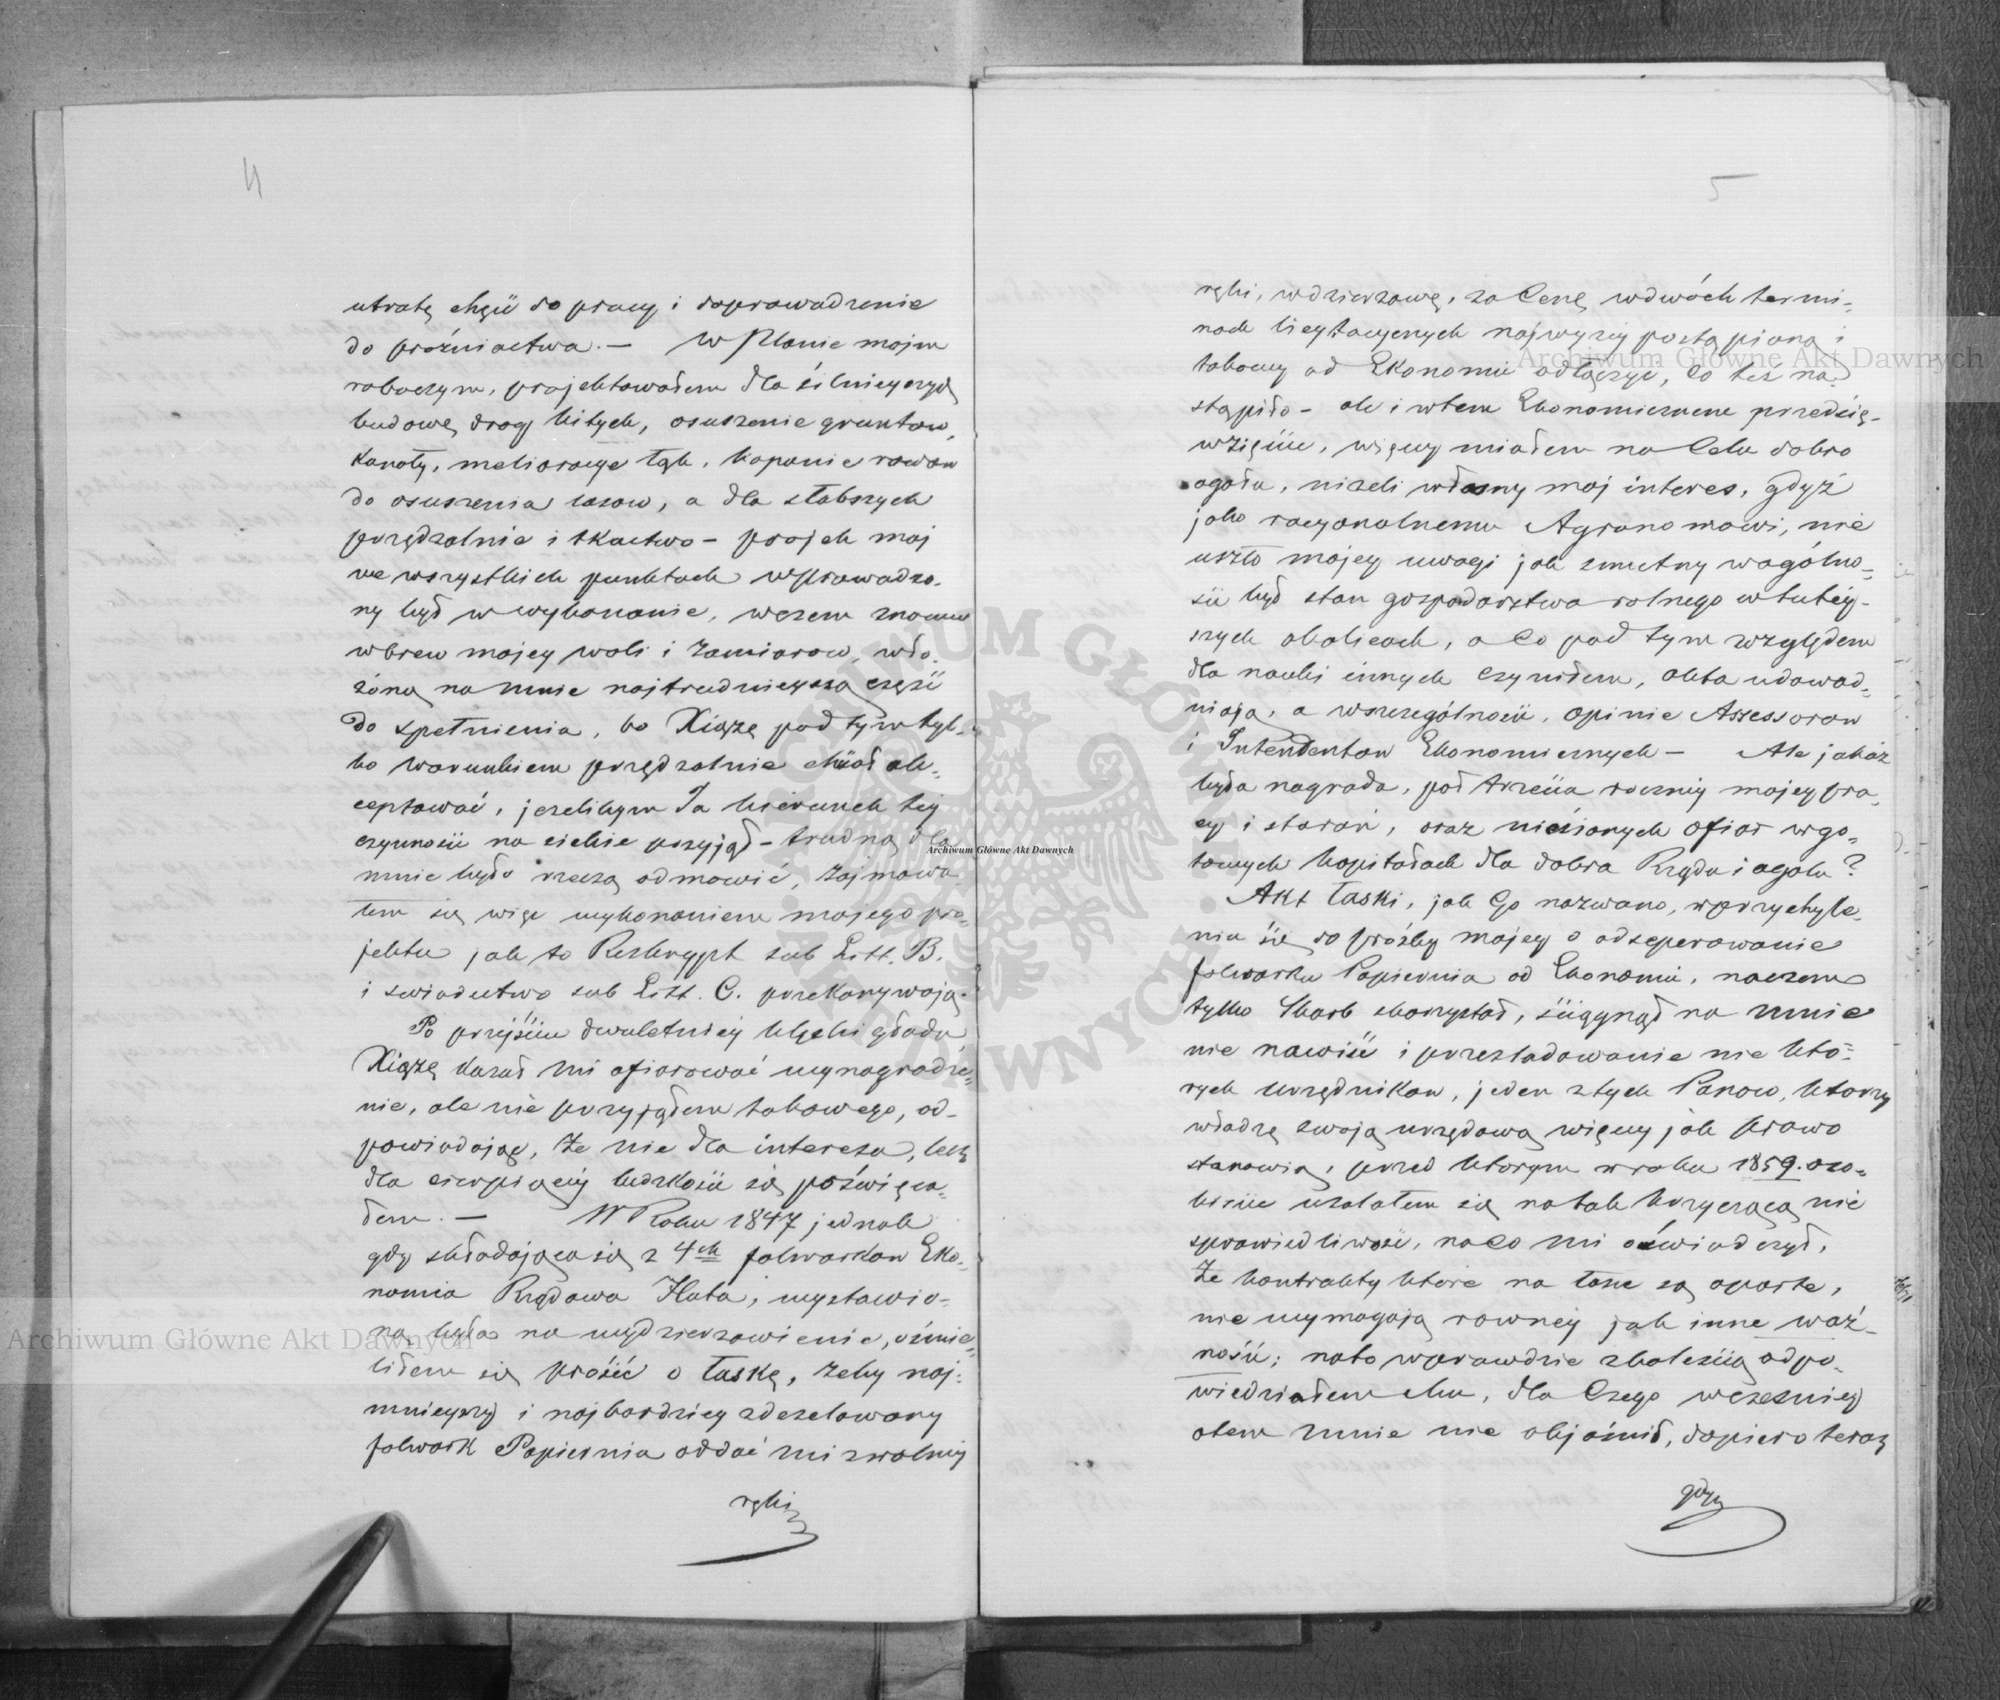 4
utratę chęci do pracy i doprowadzenie
do próżniactwa. — W Planie moim
roboczym, projektowałem dla silnieyszych
budowę drog bitych, osuszenie gruntow,
kanały, melioracye łąk, kopanie rowow
do osuszenia lasow, a dla słabszych
przędzalnie i tkactwo – projek moj
we wszystkich punktach wprowadzo-
ny był w wykonanie, wczem znowu
wbrew mojey woli i zamiarow, wło-
żóną na mnie najtrudnieyszą część
do spełnienia, bo Xiąże pod tym tyl-
ko warunkiem przędzalnie chciał ak-
ceptować, jeżelibym Ja kierunek tej
czynności na siebie przyjął – trudną dla
mnie było rzeczą odmowić, zajmowa-
łem się więc wykonaniem mojego pro-
jektu jak to Reskrypt sub Litt. B.
i swiadectwo sub Litt. C. przekonywają.
Po przejściu dwuletniej klęski głodu,
Xiąże kazał mi ofiarować wynagrodze-
nie, ale nie przyjąłem takowego, od-
powiadając, że nie dla interesu, lecz
dla cierpiącej ludzkości się poświęca-
łem. — W Roku 1847 jednak
gdy składająca się z 4ch folwarkow Eko-
nomia Rządowa Huta, wystawio-
na była na wydzierzawienie, ośmie-
liłem się prosić o łaskę, żeby naj-
mnieyszy i najbardziey zdezelowany
folwark Papiernia oddać mi zwolnej
ręki
5
ręki, wdzierzawę, za Cenę wdwóch termi-
nach licytacyjnych najwyżej postąpioną i
takowy od Ekonomii odłączyć, Co też na-
stąpiło – ale i wtem Ekonomicznem przedsię-
wzięciu, więcey miałem na Celu dobro
ogołu, niżeli własny moj interes, gdyż
jako racyonalnemu Agronomowi, nie
uszło mojey uwagi jak smutny wogólno-
ści był stan gospodarstwa rolnego wtutej-
szych okolicach, a Co pod tym względem
dla nauki innych czyniłem, akta udowad-
niają, a wszczególności, opinie Assessorow
i Intendentow Ekonomicznych — Ale jakaż
była nagroda, pod trzecia rocznej mojey pra-
cy i starań, oraz niesionych ofiar wgo-
towych kapitałach dla dobra Rządu i ogołu?
Akt łaski, jak Go nazwano, wprzychyle-
niu się do prośby mojey o odseperowanie
folwarku Papiernia od Ekonomii, naczem
tylko Skarb skorzystał, ściągnął na mnie
nie nawiść i prześladowanie nie kto-
rych urzędnikow, jeden ztych Panow, ktory
władzę swoją urzędową więcey jak prawo
stanowią, przed ktorym wroku 1859. oso-
biście użalałem się na tak krzyczącą nie
sprawiedliwość, naCo mi oświadczył,
że kontrakty ktore na łasce są oparte,
nie wymagają rowney jak inne waż-
ność; nato wprawdzie zboleścią odpo-
wiedziałem mu, dla Czego wcześniey
otem mnie nie objaśnił, dopiero teraz
gdy
Archiwum Główne Akt Dawnych
Archiwum Główne Akt Dawnych
Archiwum Główne Akt Dawnych
ARCHIWUM GŁÓWNE AKT DAWNYCH